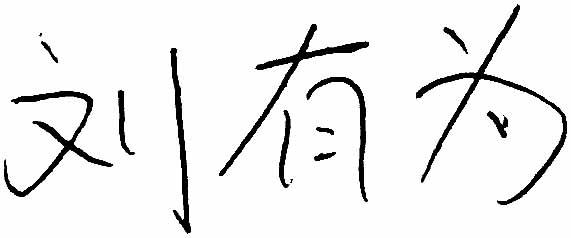 刘有为